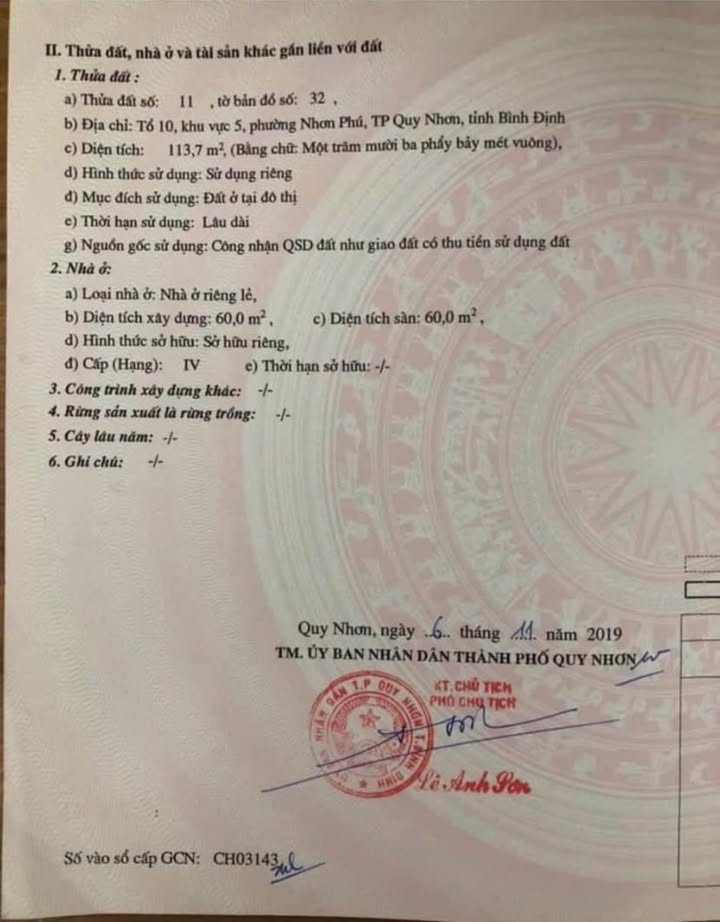 II. Thửa đất, nhà ở và tài sản khác gắn liền với đất
1. Thửa đất :
a) Thửa đất số: 11 , tờ bản đồ số: 32 ,
b) Địa chỉ: Tổ 10, khu vực 5, phường Nhơn Phú, TP Quy Nhơn, tỉnh Bình Định
c) Diện tích: 113,7 m², (Bằng chữ: Một trăm mười ba phẩy bảy mét vuông),
d) Hình thức sử dụng: Sử dụng riêng
đ) Mục đích sử dụng: Đất ở tại đô thị
e) Thời hạn sử dụng: Lâu dài
g) Nguồn gốc sử dụng: Công nhận QSD đất như giao đất có thu tiền sử dụng đất
2. Nhà ở:
a) Loại nhà ở: Nhà ở riêng lẻ,
b) Diện tích xây dựng: 60,0 m² , c) Diện tích sàn: 60,0 m² ,
d) Hình thức sở hữu: Sở hữu riêng,
đ) Cấp (Hạng): IV e) Thời hạn sở hữu: -/-
3. Công trình xây dựng khác: -/-
4. Rừng sản xuất là rừng trồng: -/-
5. Cây lâu năm: -/-
6. Ghi chú: -/-
Quy Nhơn, ngày ..6.. tháng .11. năm 2019
TM. ỦY BAN NHÂN DÂN THÀNH PHỐ QUY NHƠN
KT. CHỦ TỊCH
PHÓ CHỦ TỊCH
NHÂN DÂN T.P QUY NHƠN
Lê Anh Sơn
Số vào sổ cấp GCN: CH03143